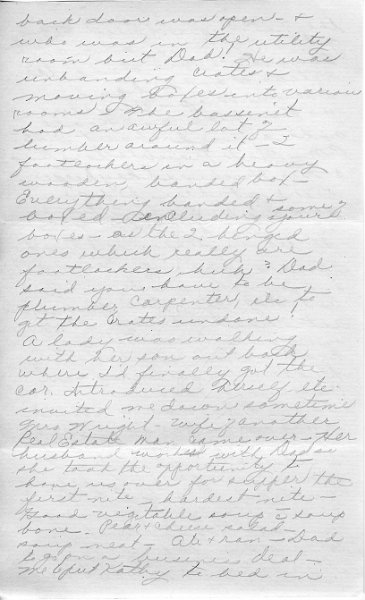 back door was open - &
who was in the utility
room but Dad. He was
unbanding crates &
moving boxes into various
rooms. The bassinet
had an awful lot of
lumber around it - 2
footlockers in a heavy
wooden, banded box -
Everything banded &
boxed - including some of your
boxes - as the 2 hinged
ones which really are
footlockers, huh? Dad
said you have to be
plumber, carpenter, etc to
get the crates undone!
A lady was walking
with her son out back
where I'd finally got the
car. Introduced herself etc.
invited me down sometime
Mrs Wright - wife of another
Real Estate man came over - Her
husband works with Dad so
she took the opportunity to
have us over for supper the
first nite - hardest nite -
Good vegetable soup c̄ soup
bone - Pear & cheese salad -
soup meat - Ate & ran - Dad
to go on a business deal -
Me & put Kathy to bed in